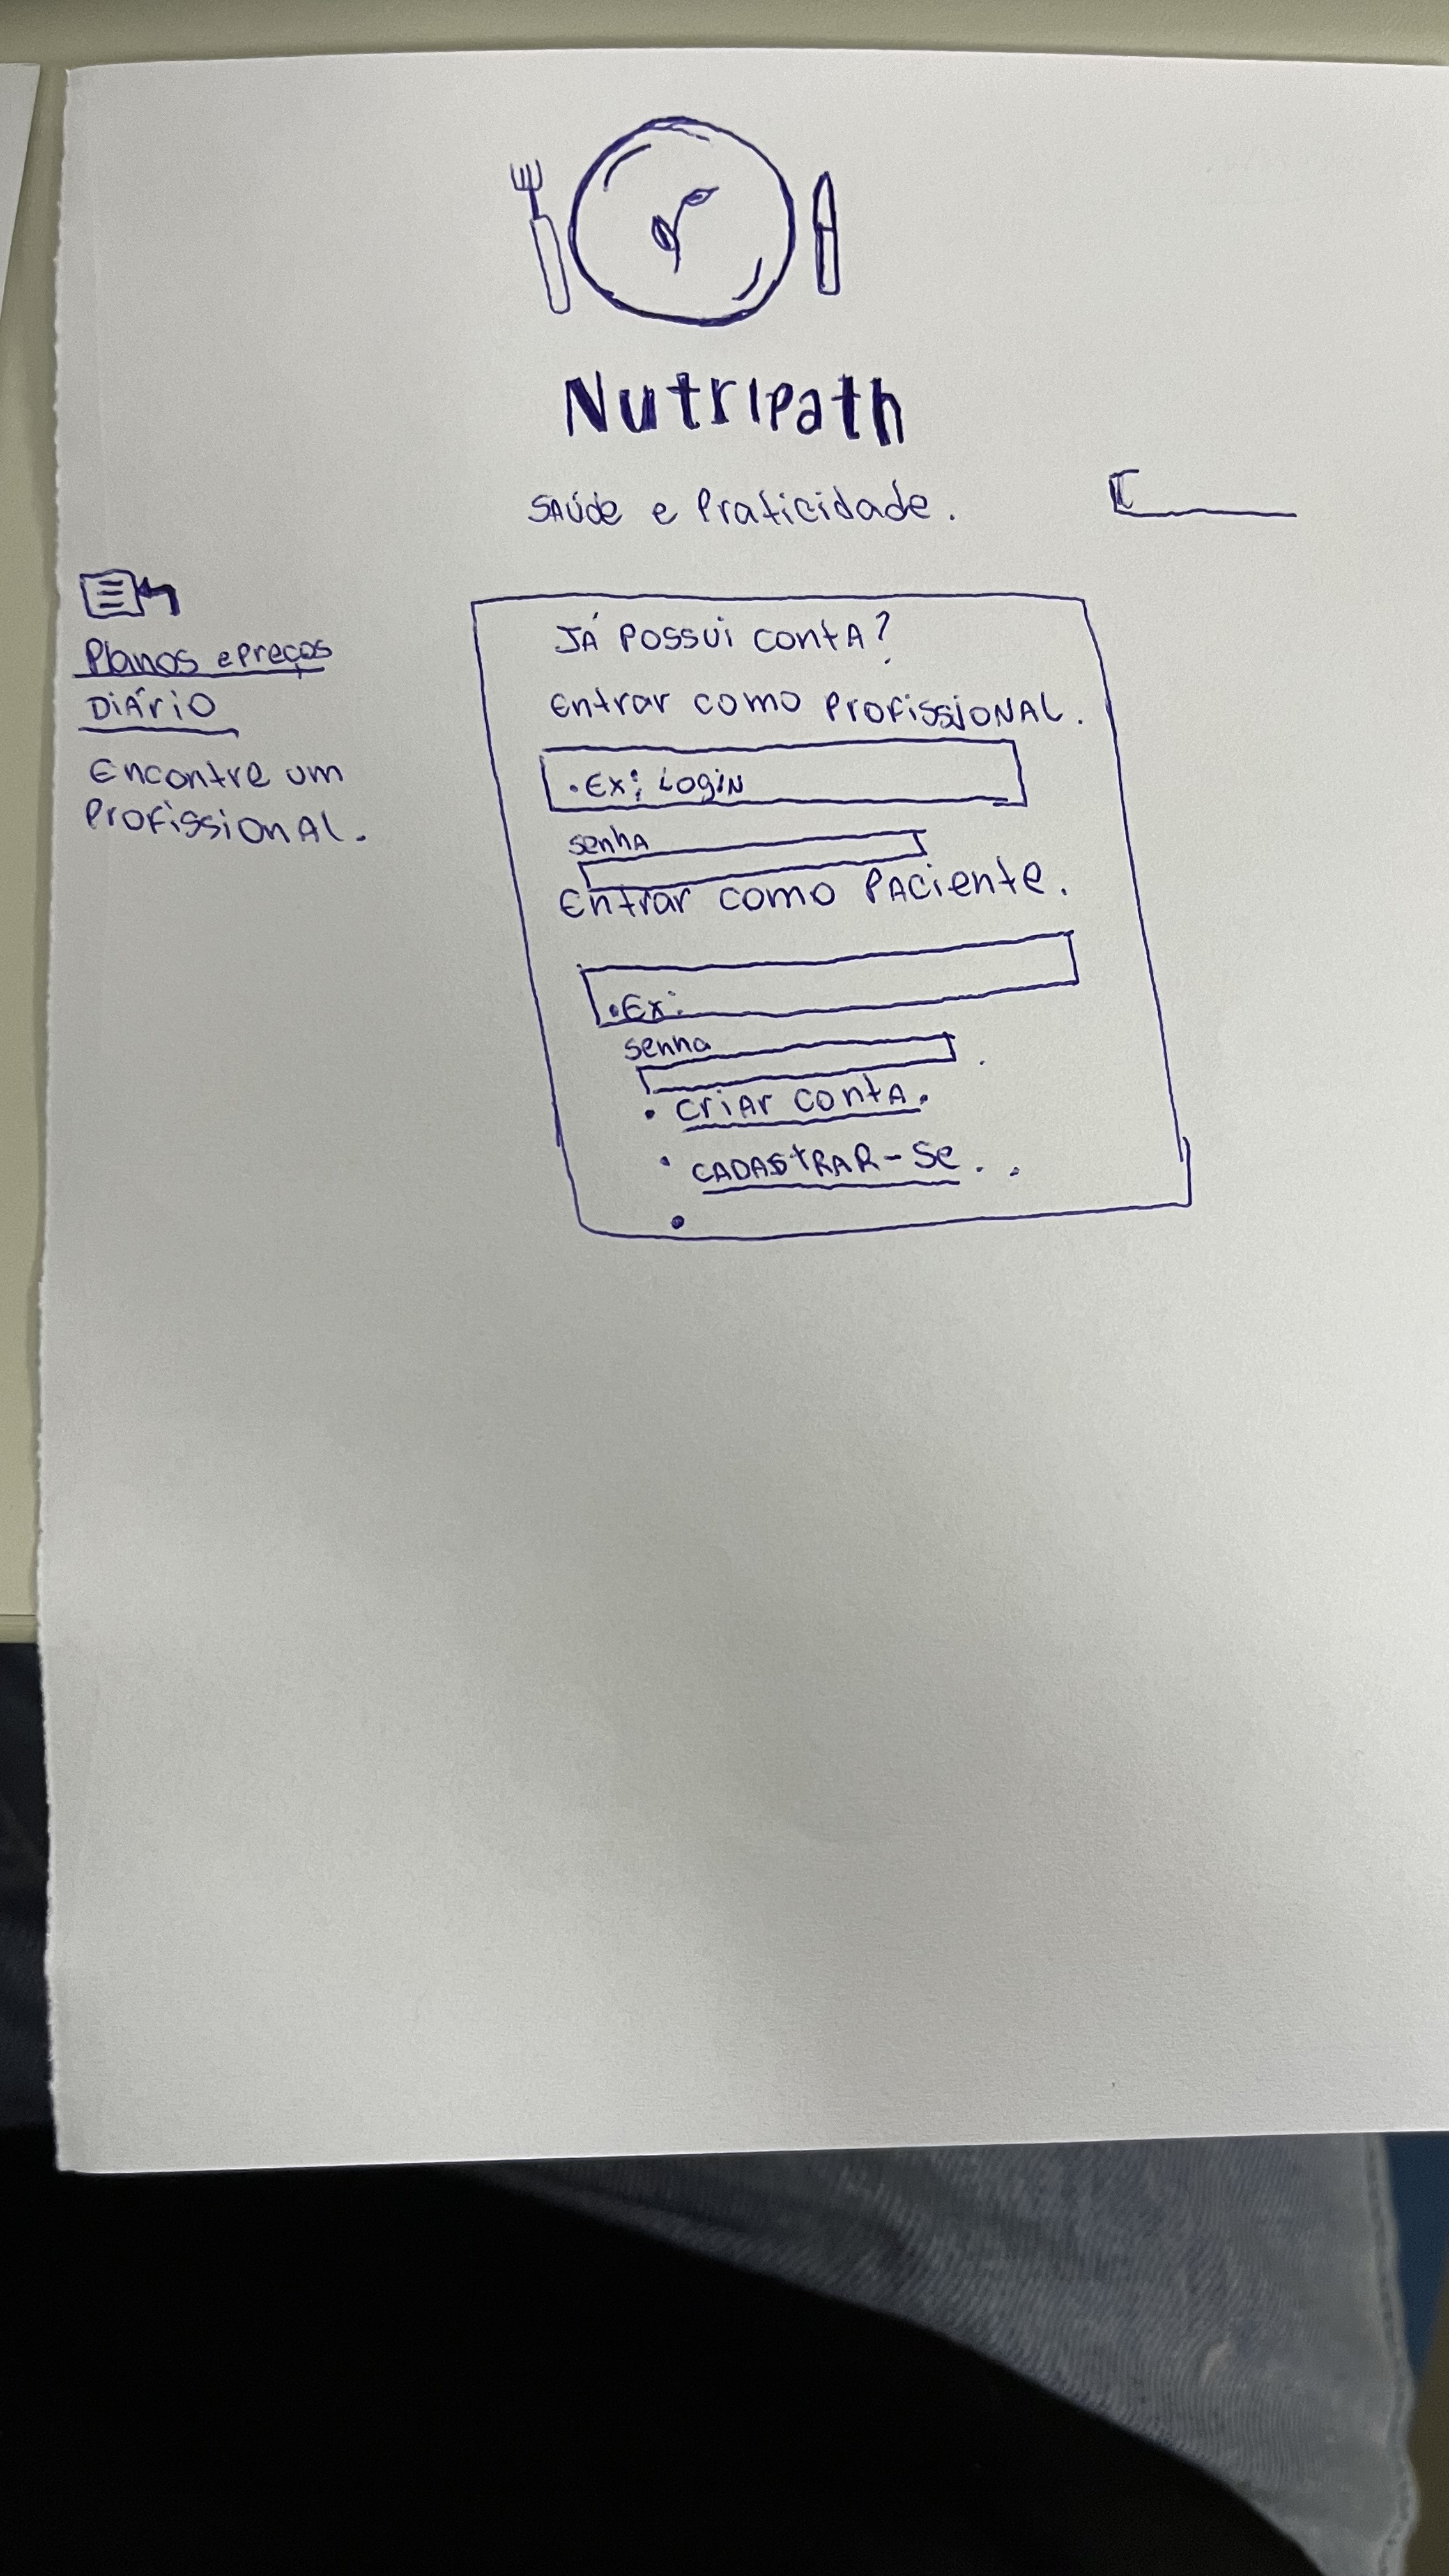 Nutripath
Saúde e Praticidade.
Planos e Preços
Diário
Encontre um
Profissional.
Já possui conta?
Entrar como Profissional.
•Ex: Login
senha
Entrar como Paciente.
•Ex:
senha
• Criar conta.
• Cadastrar-se..